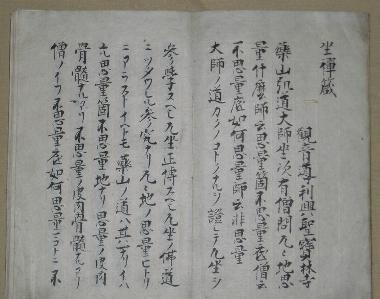 坐禪箴
觀音導利興聖寶林寺
藥山弘道大師坐次有僧問兀々地思
量什麼師云思量箇不思量底僧云
不思量底如何思量師云非思量
大師ノ道カクノコトクナルヲ證シテ兀坐ヲ
參學スヘシ兀坐正傳スヘシ兀坐ノ佛道
ニツタワレル參究ナリ兀々地ノ思量ヒトリ
ニアラストイヘトモ藥山ノ道ハ其一ナリイハ
ユル思量箇不思量地ナリ思量ノ皮肉
骨髓ナルアリ不思量ノ皮肉骨髓ナルアリ
僧ノイフ不思量底如何思量マコトニ不